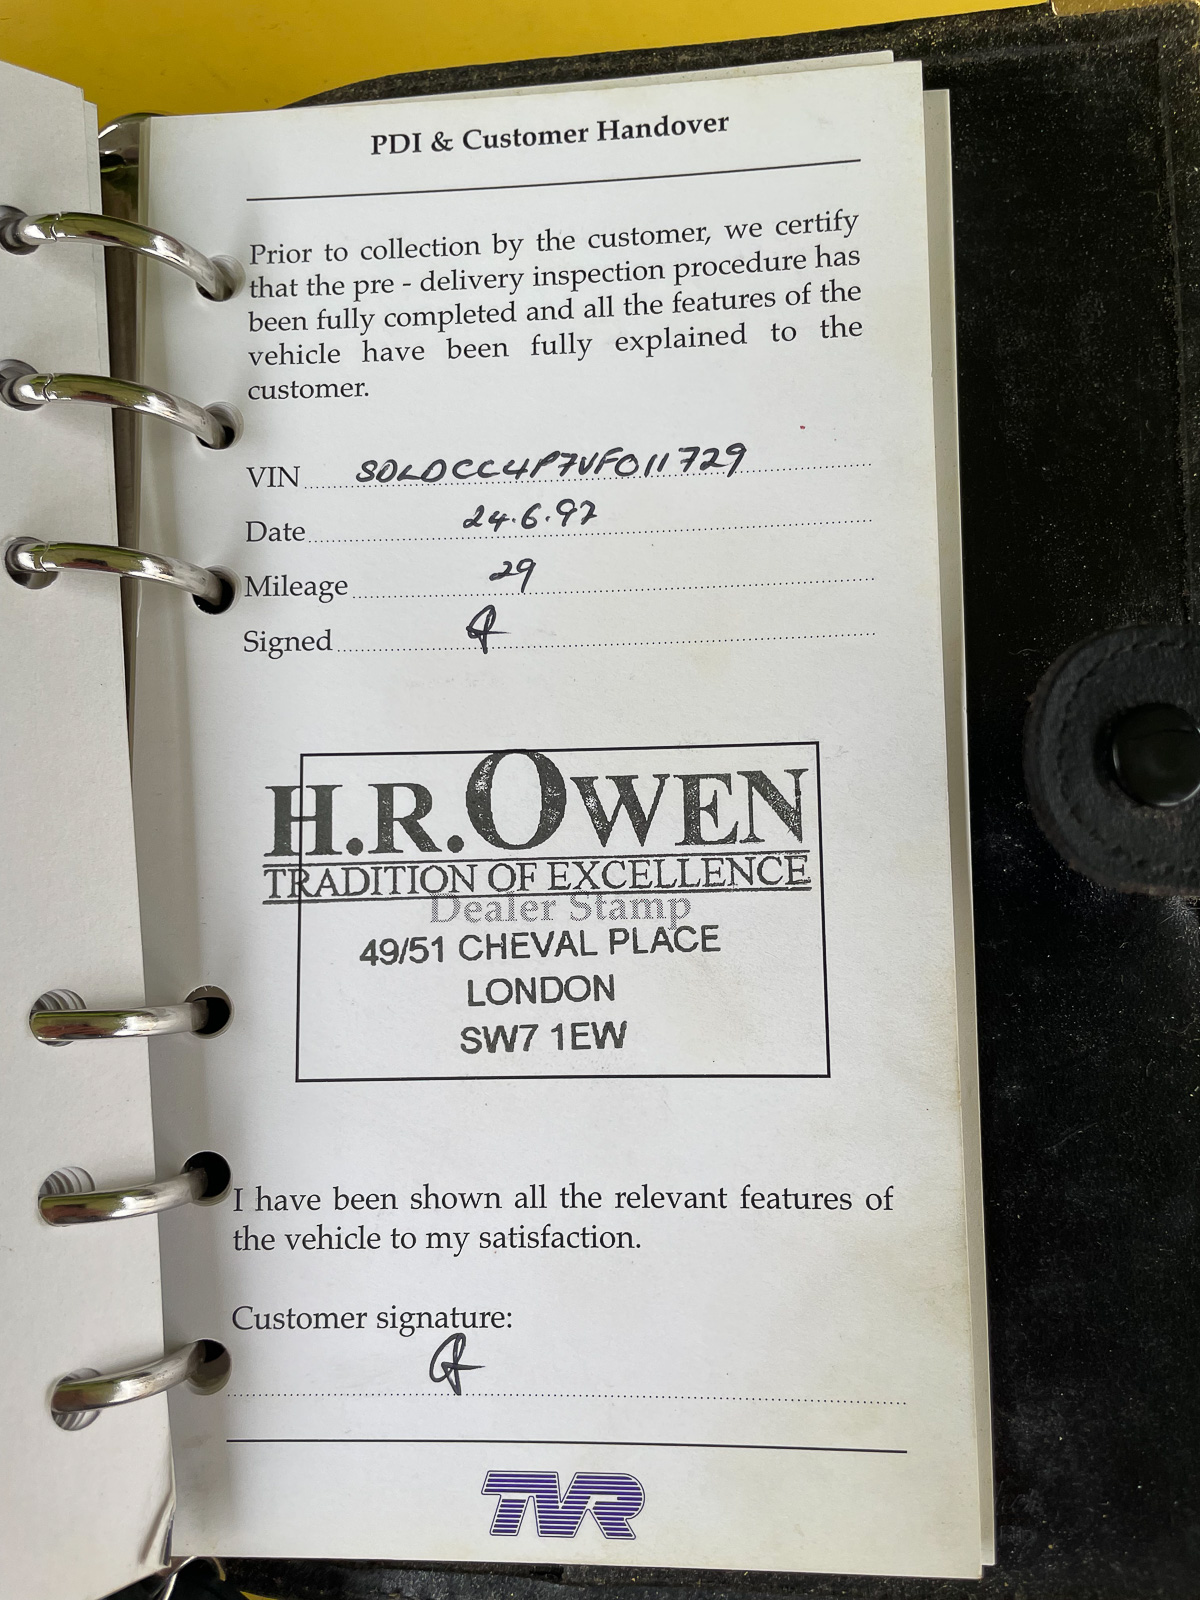 PDI & Customer Handover
Prior to collection by the customer, we certify
that the pre - delivery inspection procedure has
been fully completed and all the features of the
vehicle have been fully explained to the
customer.
VIN SDLDCC4P7VF011729
Date 24.6.97
Mileage 29
Signed
H.R. OWEN
TRADITION OF EXCELLENCE
Dealer Stamp
49/51 CHEVAL PLACE
LONDON
SW7 1EW
I have been shown all the relevant features of
the vehicle to my satisfaction.
Customer signature:
TVR